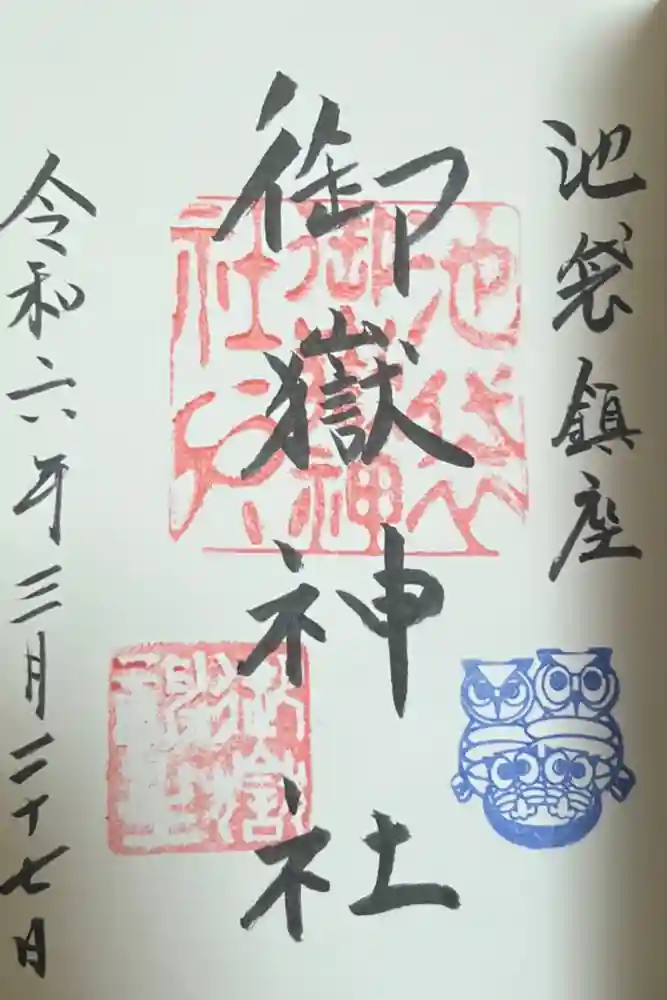 池袋鎮座
御嶽神社
令和六年三月二十七日
池袋
御嶽神
社